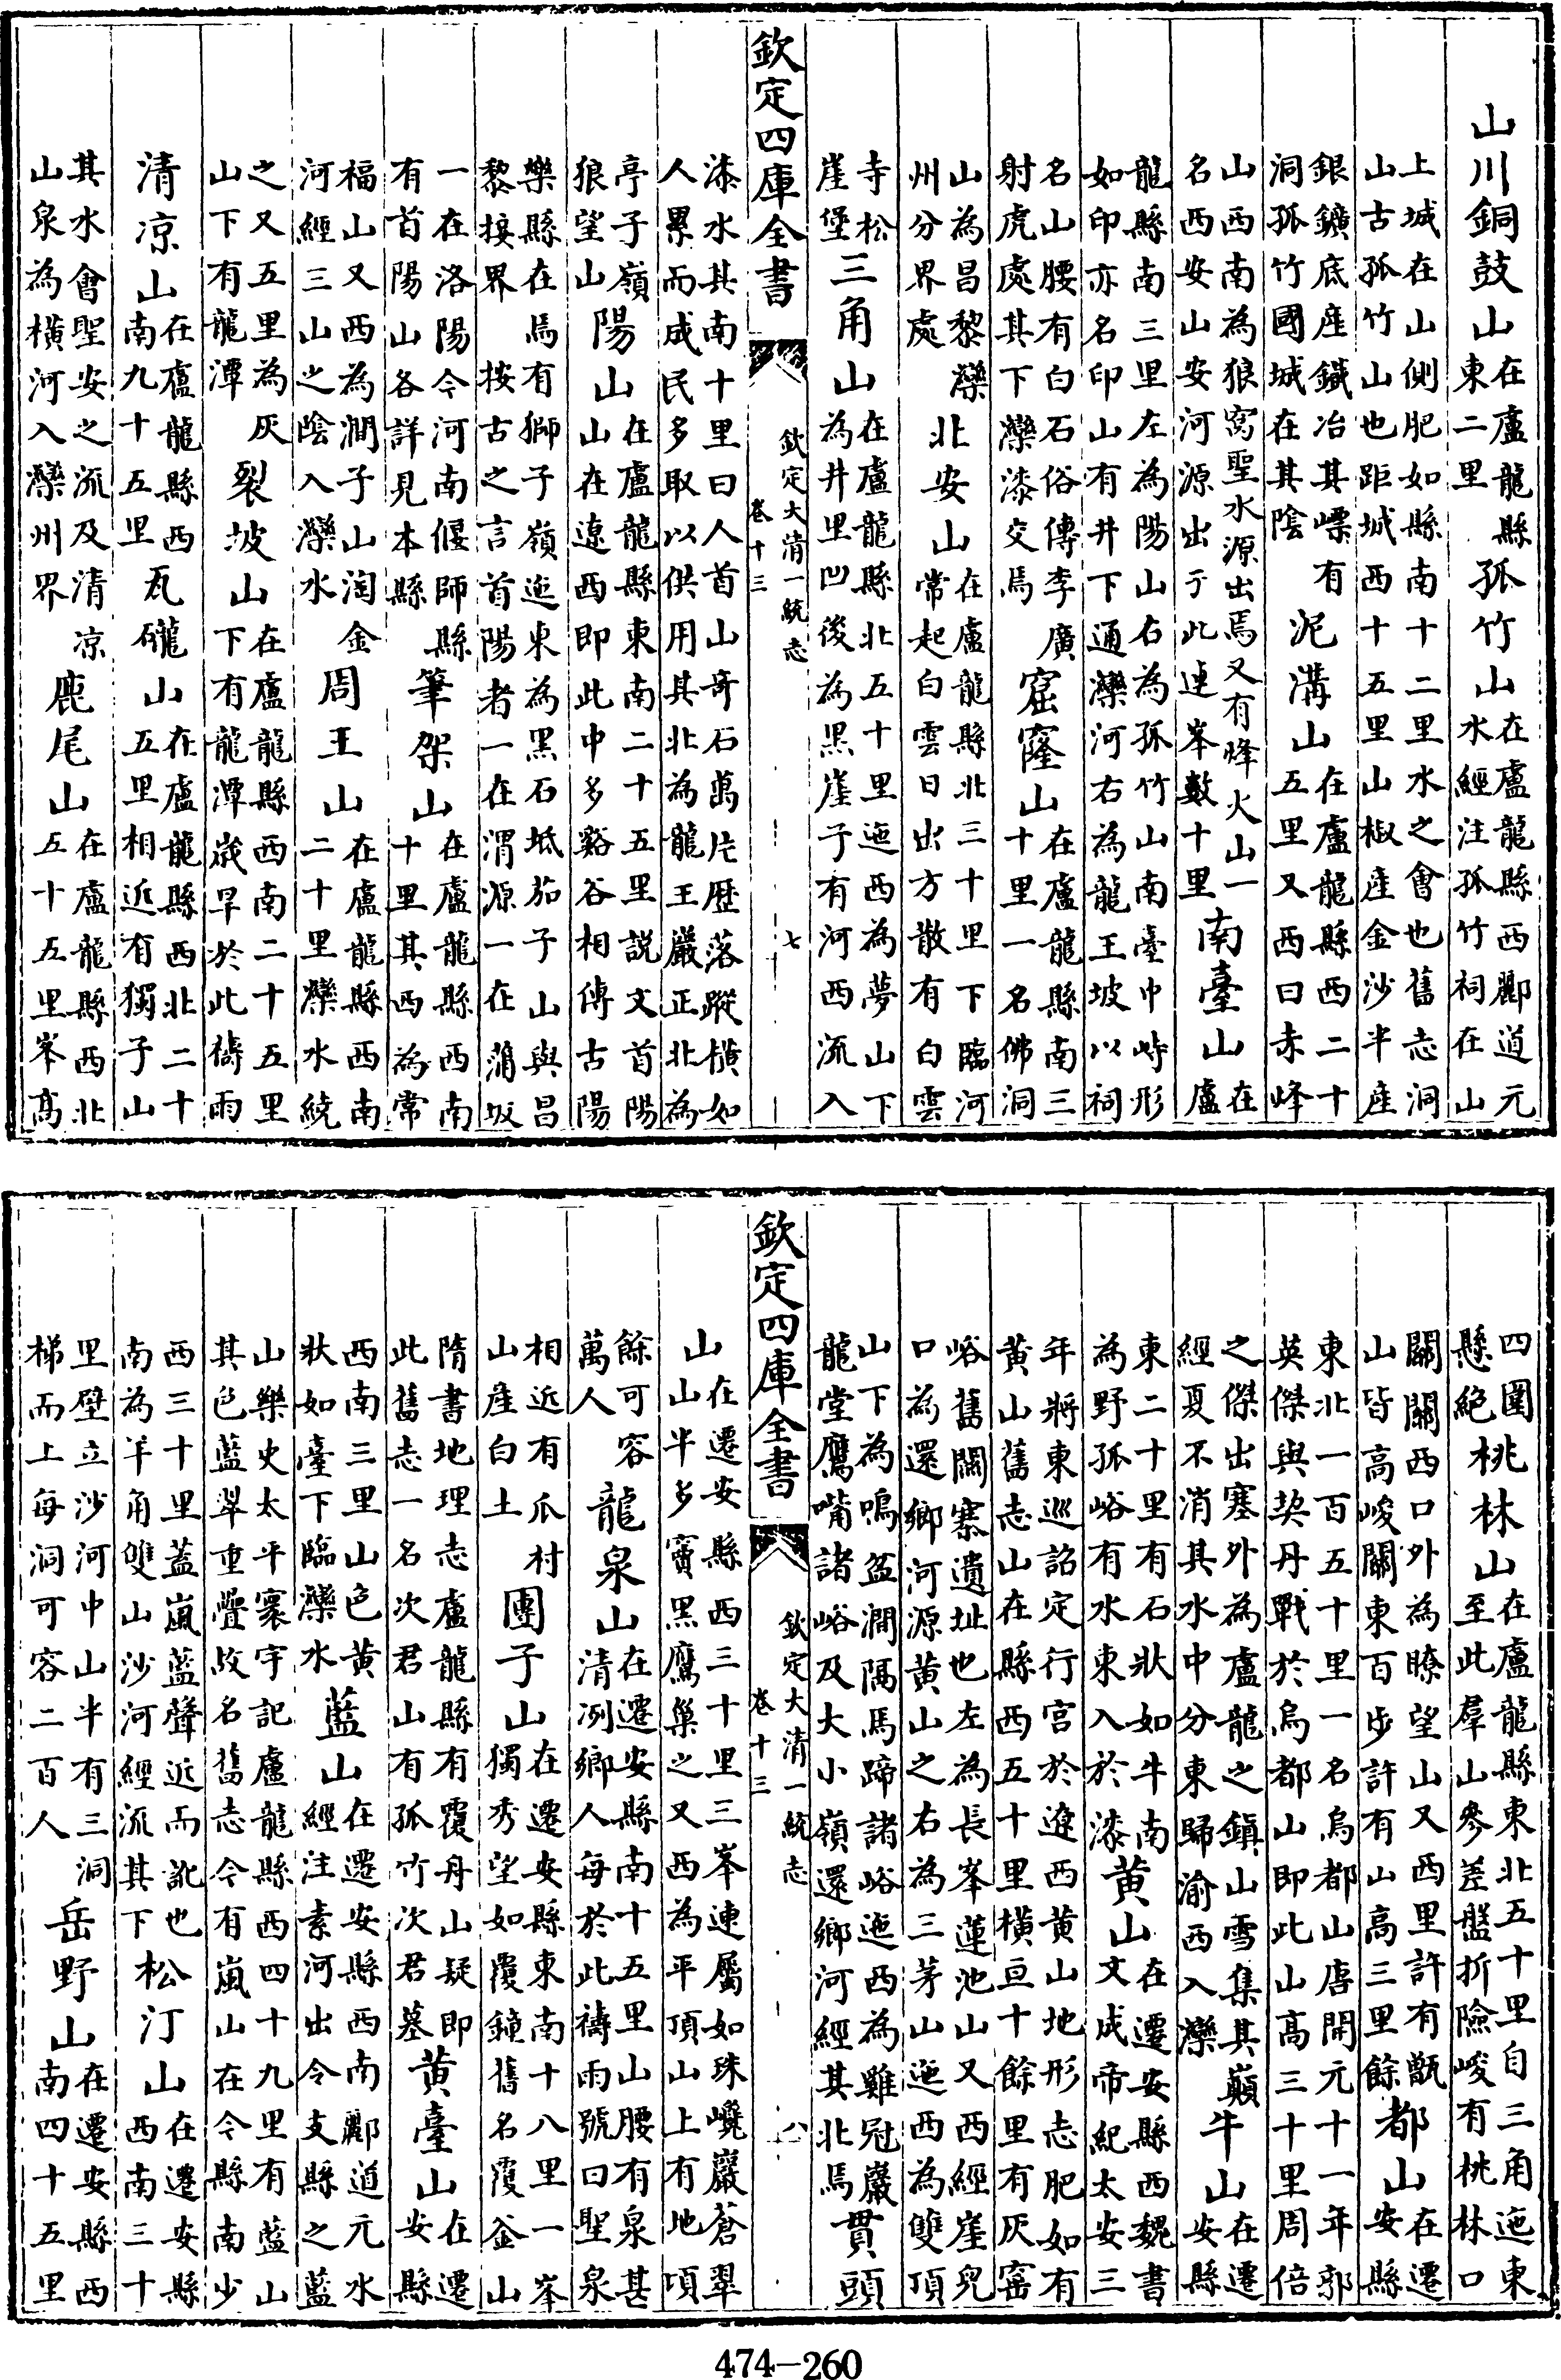 山川銅鼓山在盧龍縣東二里孤竹山在盧龍縣西酈道元水經注孤竹祠在山
上城在山側肥如縣南十二里水之會也舊志洞山古孤竹山也距城西十五里山椒產金沙半產
銀鑛底產鐵冶其有洞孤竹國城在其陰泥溝山在盧龍縣西二十五里又西曰赤峰
山西南為狼窩聖水源出焉又有烽火山一名西安山安河源出于此連峯數十里南臺山在盧
龍縣南三里左為陽山右為孤竹山南臺中峙形如印亦名印山有井下通灤河右為龍王坡以祠
名山腰有白石俗傳李廣射虎處其下灤漆交焉窟窿山在盧龍縣南三十里一名佛洞
山為昌黎灤州分界處北安山在盧龍縣北三十里下臨河常起白雲日出方散有白雲
寺松崖堡三角山在盧龍縣北五十里迤西為夢山下為井里凹後為黑崖子有河西流入
欽定四庫全書 欽定大清一統志 卷十三 七
漆水其南十里曰人首山奇石萬片歷落蹤橫如人累而成民多取以供用其北為龍王嚴正北為
亭子嶺狼望山陽山在盧龍縣東南二十五里説文首陽山在遼西即此中多谿谷相傳古陽
樂縣在焉有獅子嶺迤東為黑石坻茄子山與昌黎接界 按古之言首陽者一在渭源一在蒲坂
一在洛陽今河南偃師縣有首陽山各詳見本縣筆架山在盧龍縣西南十里其西為常
福山又西為澗子山淘金河經三山之陰入灤水周王山在盧龍縣西南二十里灤水繞
之又五里為灰山下有龍潭裂坡山在盧龍縣西南二十五里下有龍潭歲旱於此禱雨
清凉山在盧龍縣西南九十五里瓦礲山在盧龍縣西北二十五里相近有獨子山
其水會聖安之流及清凉山泉為橫河入灤州界鹿尾山在盧龍縣西北五十五里峯高
四圍懸絕桃林山在盧龍縣東北五十里自三角迤東至此羣山參差盤折險峻有桃林口
關關西口外為瞭望山又西里許有甑山皆高峻關東百步許有山高三里餘都山在遷安縣
東北一百五十里一名烏都山唐開元十一年郭英傑與契丹戰於烏都山即此山高三十里周倍
之傑出塞外為盧龍之鎮山雪集其巔經夏不消其水中分東歸渝西入灤牛山在遷安縣
東二十里有石狀如牛南為野孤峪有水東入於漆黄山在遷安縣西魏書文成帝紀太安三
年將東巡詔定行宫於遼西黄山地形志肥如有黄山舊志山在縣西五十里橫亘十餘里有灰窰
峪舊關寨遺址也左為長峯蓮池山又西經崖兒口為還鄉河源黄山之右為三茅山迤西為雙頂
山下為鳴盆澗隅馬蹄諸峪迤西為雞冠巖龍堂鷹嘴諸峪及大小嶺還鄉河經其北馬貫頭
欽定四庫全書 欽定大清一統志 卷十三 八
山在遷安縣西三十里三峯連屬如珠巉巖蒼翠山半多竇黑鷹巢之又西為平頂山上有地頃
餘可容萬人龍泉山在遷安縣南十五里山腰有泉甚清冽鄉人每於此禱雨號曰聖泉
相近有爪村山產白土團子山在遷安縣東南十八里一峯獨秀望如覆鐘舊名覆釜山
隋書地理志盧龍縣有覆舟山疑即此舊志一名次君山有孤竹次君墓黄臺山在遷安縣
西南三里山色黄狀如臺下臨灤水藍山在遷安縣西南酈道元水經注素河出令支縣之藍
山樂史太平寰宇記盧龍縣西四十九里有藍山其色藍翠重疊故名舊志今有嵐山在今縣南少
西三十里蓋嵐藍聲近而訛也南為羊角雙山沙河經流其下松汀山在遷安縣西南三十
里壁立沙河中山半有三洞梯而上每洞可容二百人岳野山在遷安縣西南四十五里
474-260